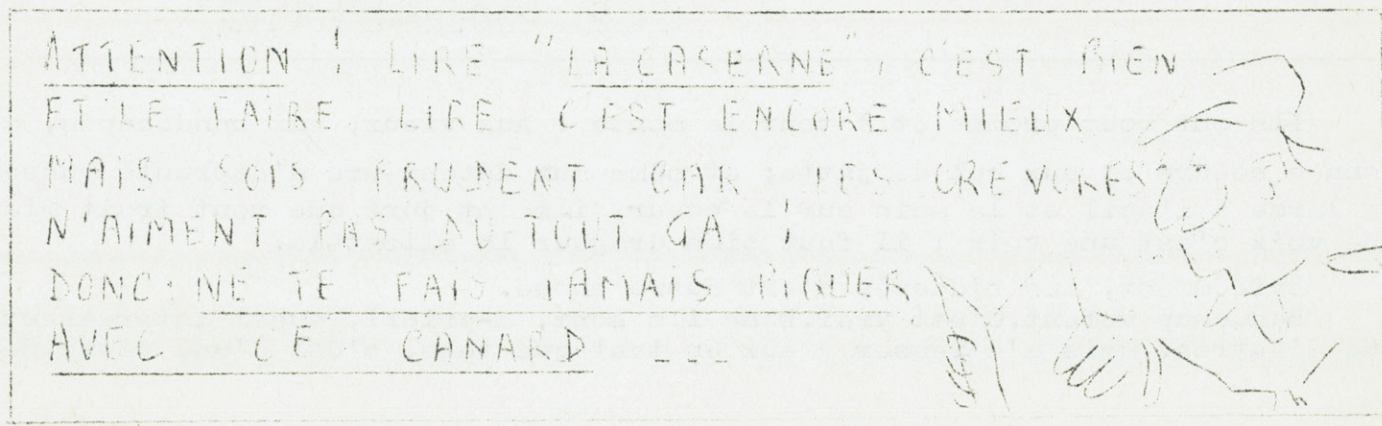 ATTENTION ! LIRE "LA CASERNE", C'EST BIEN
ET LE FAIRE LIRE C'EST ENCORE MIEUX
MAIS SOIS PRUDENT CAR LES CREVURE
N'AIMENT PAS DU TOUT ÇA !
DONC NE TE FAIT JAMAIS PIQUER
AVEC CE CANARD ---